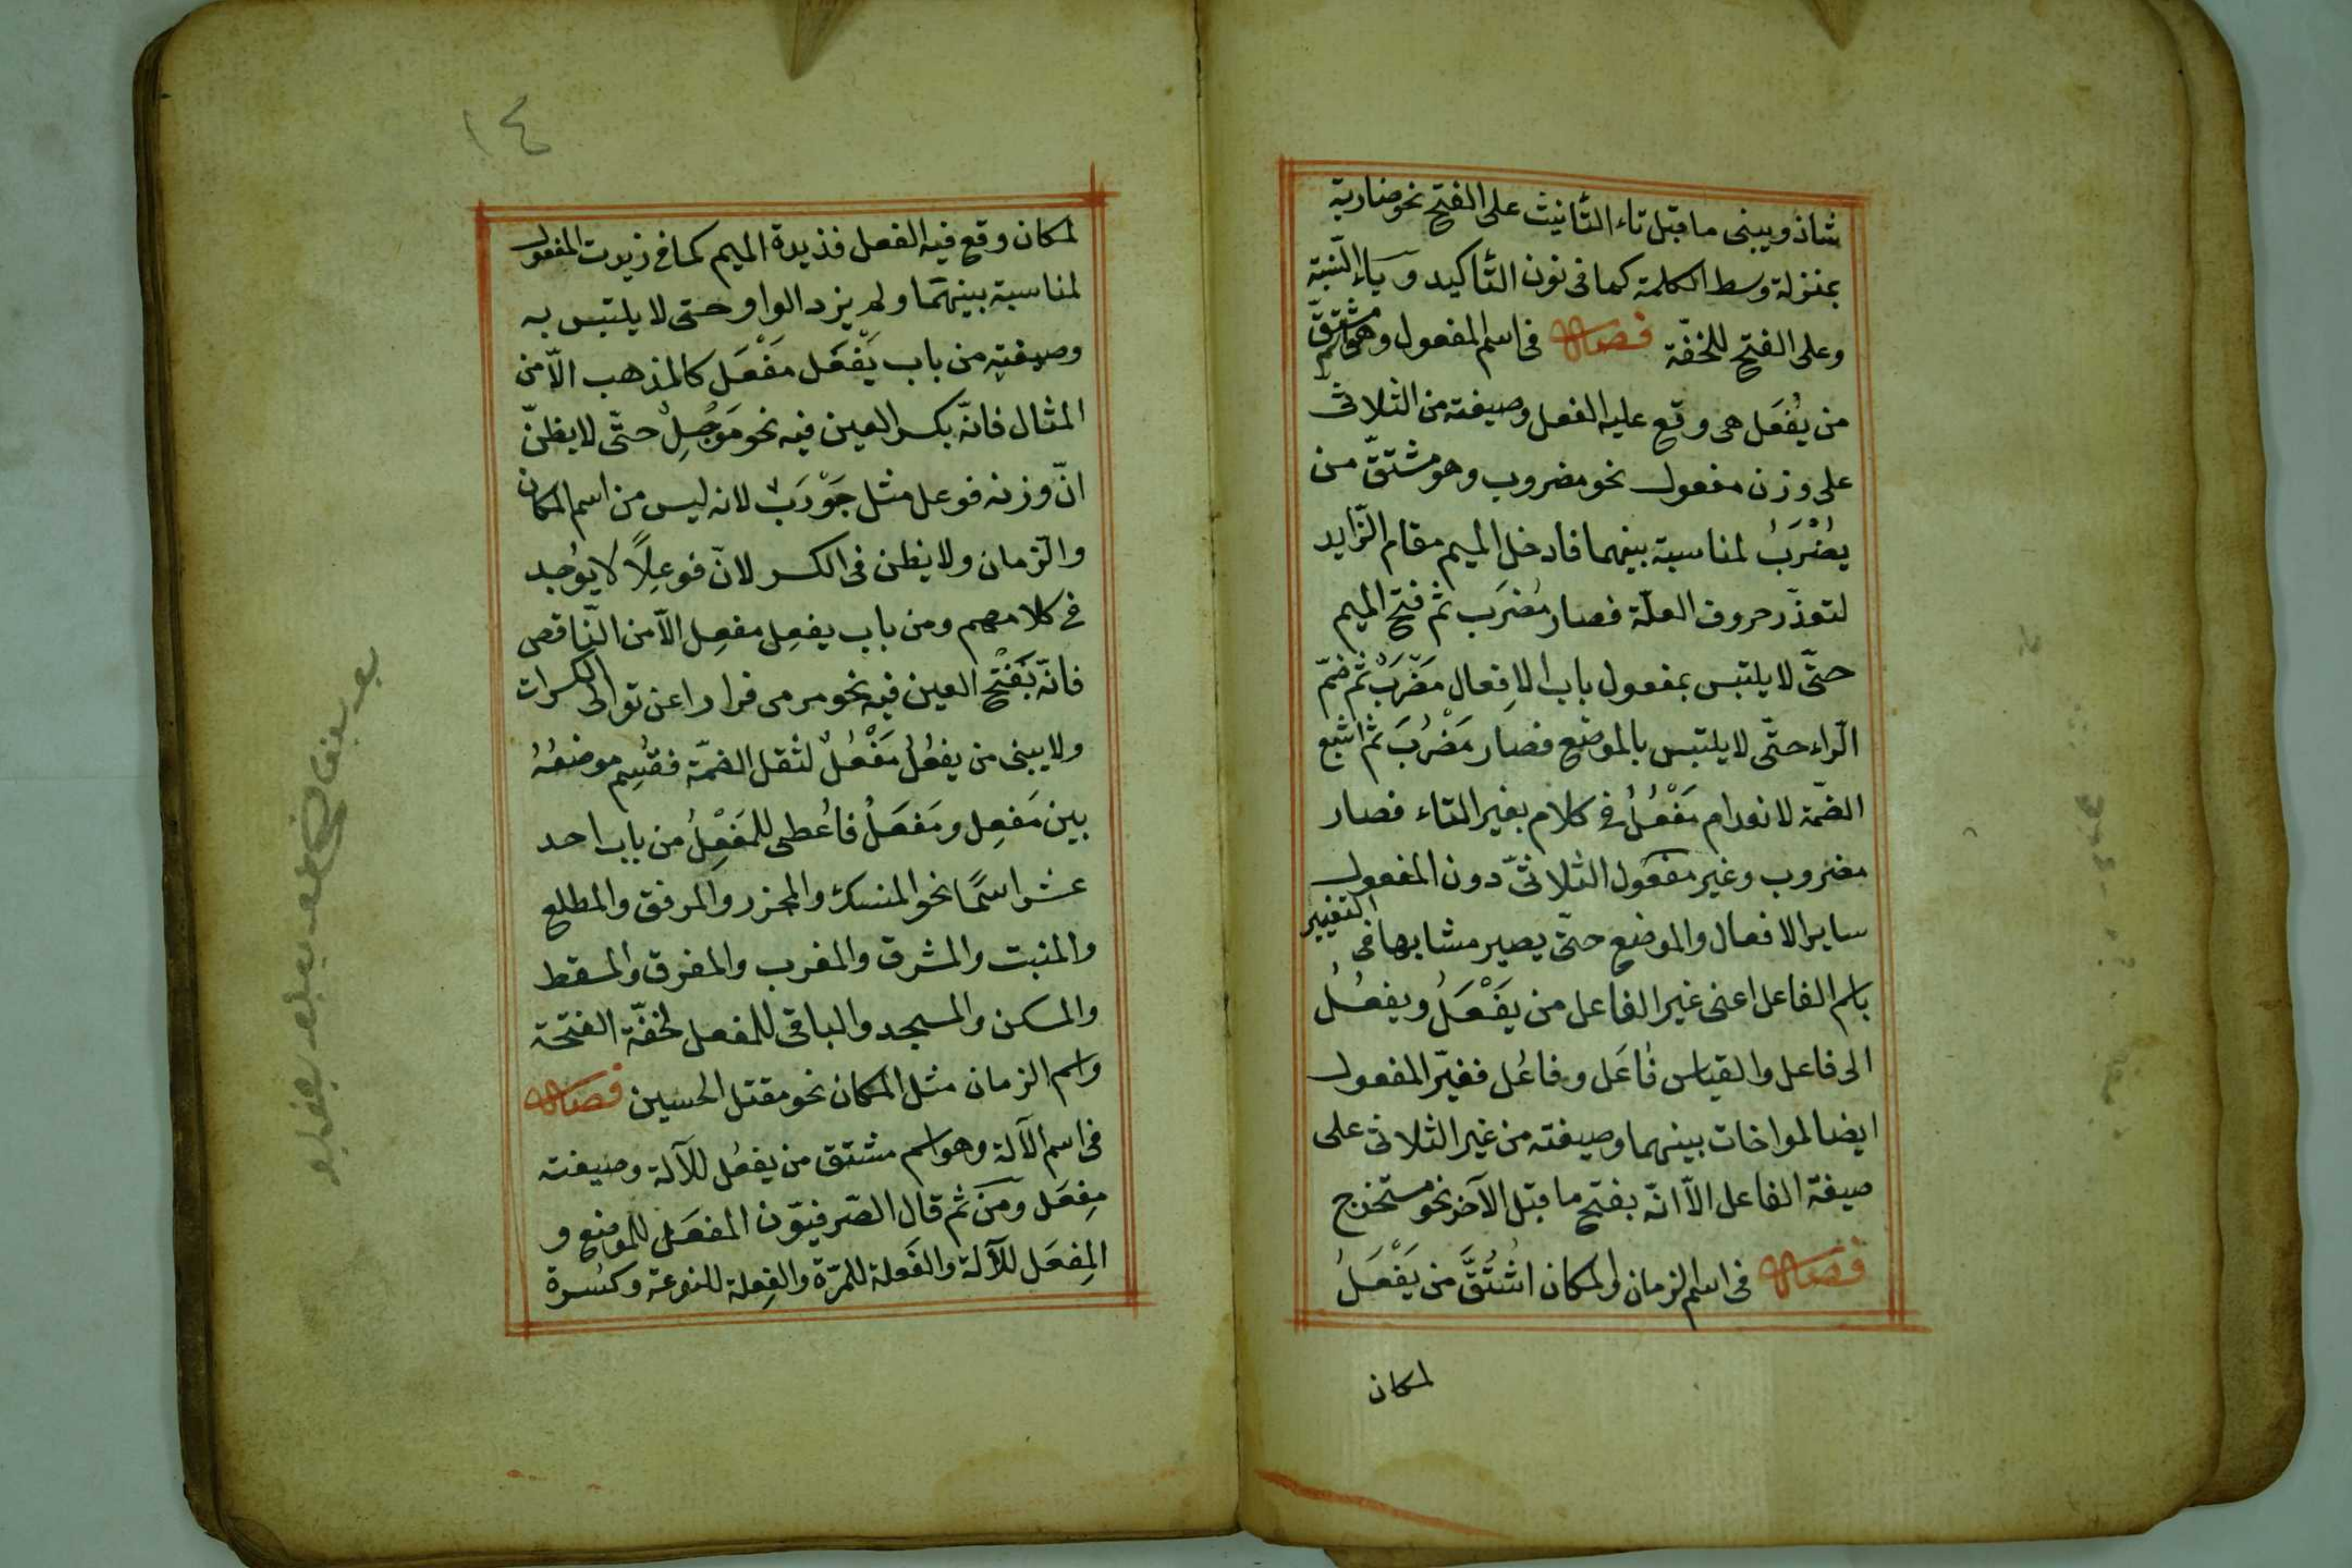 شاذ ويبنى ما قبل تاء التأنيث على الفتح نحو ضاربة
بمنزلة وسط الكلمة كما فى نون التأكيد وياء النسبة
وعلى الفتح للخفّة فصل فى اسم المفعول وهو اسم مشتقّ
من يُفعَل هى وقع عليه الفعل وصيغته من الثلاثىّ
على وزن مفعول نحو مضروب وهو مشتقّ من
يُضْرَبُ لمناسبة بينهما فادخل الميم مقام الزّايد
لتعذّر حروف العلّة فصار مُضرَب ثمّ فتح الميم
حتّى لا يلتبس بمفعول باب الافعال مَضْرَبْ ثمّ ضمّ
الرّاء حتّى لا يلتبس بالموضع فصار مَضْرُبَ ثمّ اشبع
الضمّة لانعدام مَفْعُلُ فى كلام بغير التاء فصار
مضروب وغير مفعول الثلاثىّ دون المفعول
ساير الافعال والموضع حتّى يصير مشابها فى التغيير
باسم الفاعل اعنى غير الفاعل من يَفْعَلُ ويفعُلُ
الى فاعل والقياس فاعَل وفاعُل فغيّر المفعول
ايضا لمواخات بينهما وصيغته من غير الثلاثى على
صيغة الفاعل الاّ انّه بفتح ما قبل الآخر نحو مستخرج
فصل فى اسم الزمان والمكان اشتُقَّ من يَفْعَلُ
لمكان
١٤
لمكان وقع فيه الفعل فذيدة الميم كما فى زيدت المفعول
لمناسبة بينهما ولم يزد الواو حتى لا يلتبس به
وصيغته من باب يَفْعَل مَفْعَل كالمذهب الاّ من
المثال فانّه بكسر العين فيه نحو مَوْجِلٌ حتّى لا يظنّ
انّ وزنه فوعل مثل جَوْرَبْ لانه ليس من اسم المكان
والزمان ولا يظن فى الكسر لانّ فوعِلًا لا يوُجد
فى كلامهم ومن باب يفعِل مفعِل الاّ من النّاقص
فانّه بَفَتْح العين فيه نحو مرمى فرارا عن توالى الكسرات
ولا يبنى من يفعُلُ مَفْعُلٌ لثقل الضمّة فقُسِم موضعُهُ
بين مَفعِل ومَفعَلُ فاُعطى للمَفْعِلُ من باب احد
عشر اسمًا نحو المنسك والمجزر والمرفق والمطلع
والمنبت والمشرق والمغرب والمفرق والمسقط
والمسكن والمسجد والباقى للمفعل لخفّة الفتحة
واسم الزمان مثل المكان نحو مقتل الحسين فصل
فى اسم الآلة وهو اسم مشتق من يفعُل للآلة وصيغته
مِفعَل ومن ثم قال الصّرفيوّن المفعَل للموضع و
المِفعَل للآلة والفَعلة للمرّة والفِعلة للنوعة وكسرة